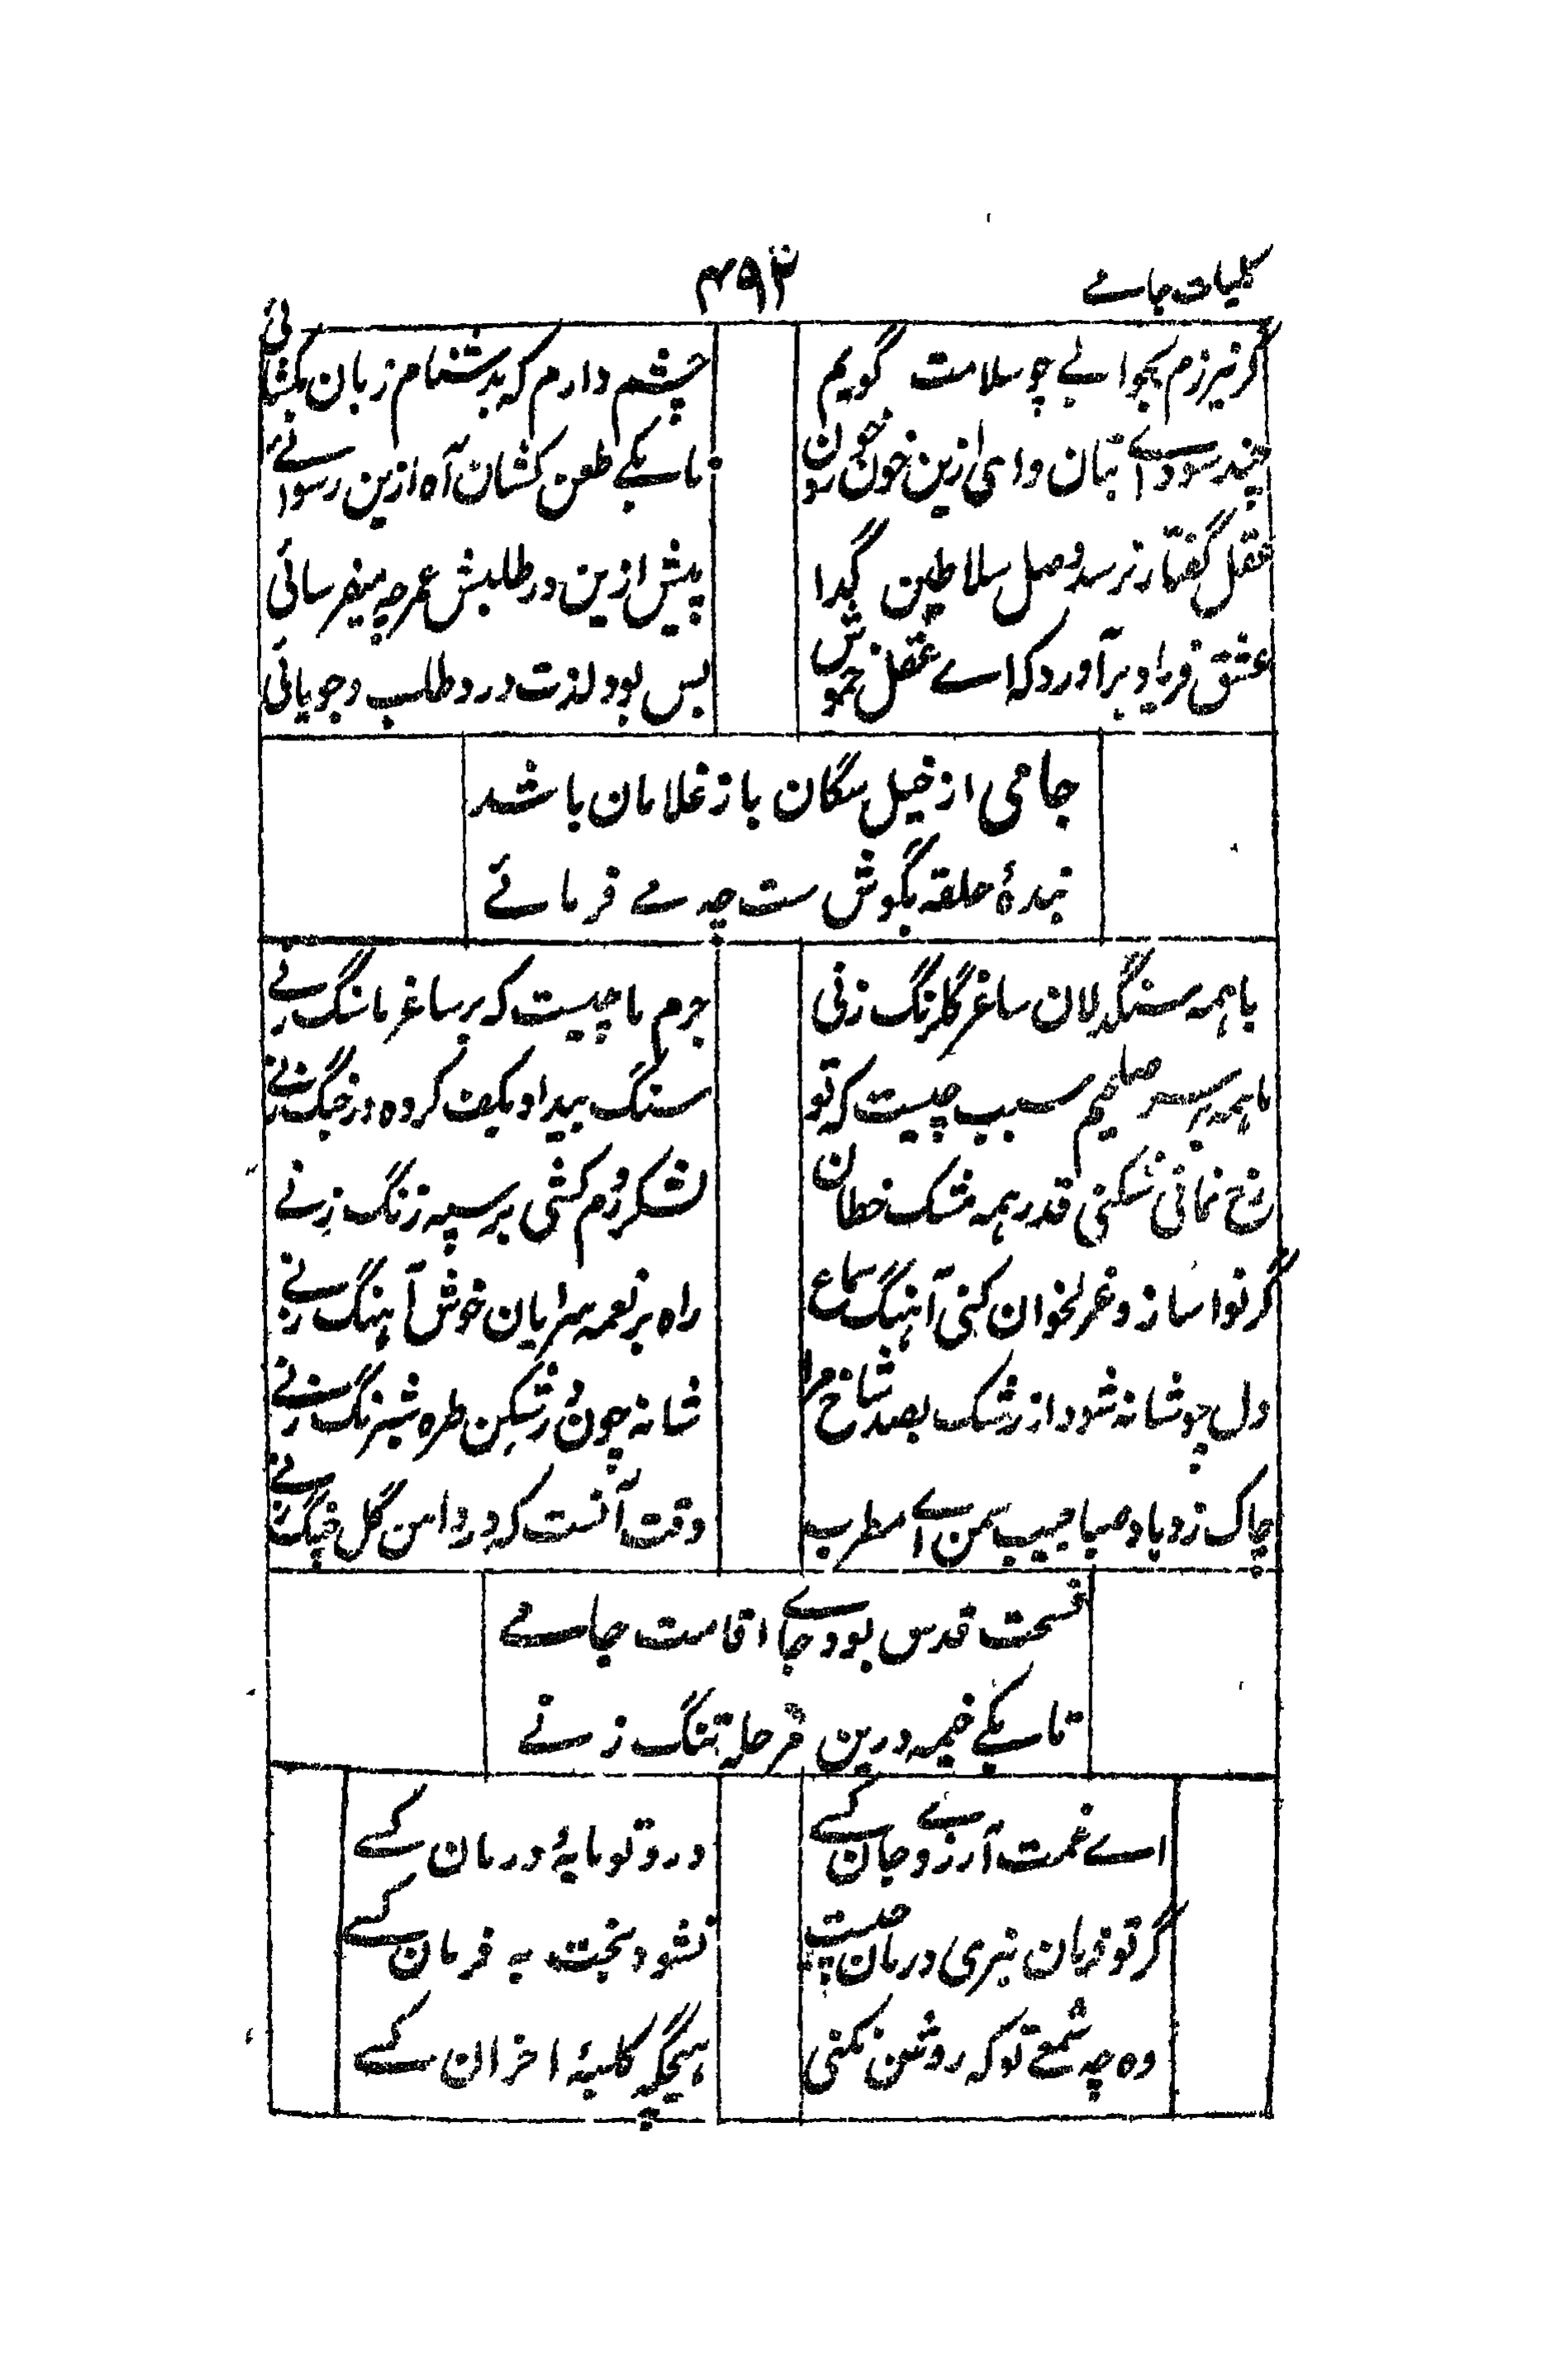 کلیات جامے
۴۹۳
گر نیرزم بجوابے چو سلامت گویم
چشم دارم که بدشنام زبان بکشائی
چند رسودائے بتان وای ازین خون خوردن
تا بکے طعن کشان آه ازین رسوائے
عقل گفتا نرسد وصل سلاطین بگدا
پیش ازین در طلبش عمر چه میفرسائی
عشق فریاد برآورد که اے عقل خموش
بس بود لذت درد طلب و جویائی
جامی از خیل سگان باز غلامان باشد
بندهٔ حلقه بگوش ست چه مے فرمائے
با همه سنگدلان ساغر گلرنگ زنی
جرم ما چیست که بر ساغر ما سنگ زنے
ما همه بر سر صلحیم سبب چیست که تو
سنگ بیداد بکف کرده در جنگ زنے
رخ نمائی شکنی قدر همه مشک خطان
لشکر روم کشی بر سپه زنگ زنے
گر نوا ساز و غزلخوان کنی آهنگ سماع
راه بر نغمه سرایان خوش آهنگ زنے
دل چو شانه شود از رشک بصد شاخ مرا
شانه چون در شکن طره شبرنگ زنے
چاک زد باد صبا جیب سمن اے مطرب
وقت آنست که در دامن گل چنگ زنے
فسحت قدس بود جاے اقامت جامے
تا بکے خیمه درین مرحله تنگ زنے
اے غمت آرزوے جان کسے
درد تو مایهٔ درمان کسے
گر تو فرمان نبری درمان چیست
نشود بخت به فرمان کسے
وه چه شمعے تو که روشن نکنی
هیچگه کلبهٔ احزان کسے